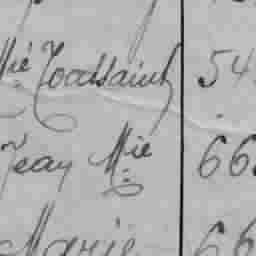 Mié Toussaint 54
Jean Mie 66
Marie 66